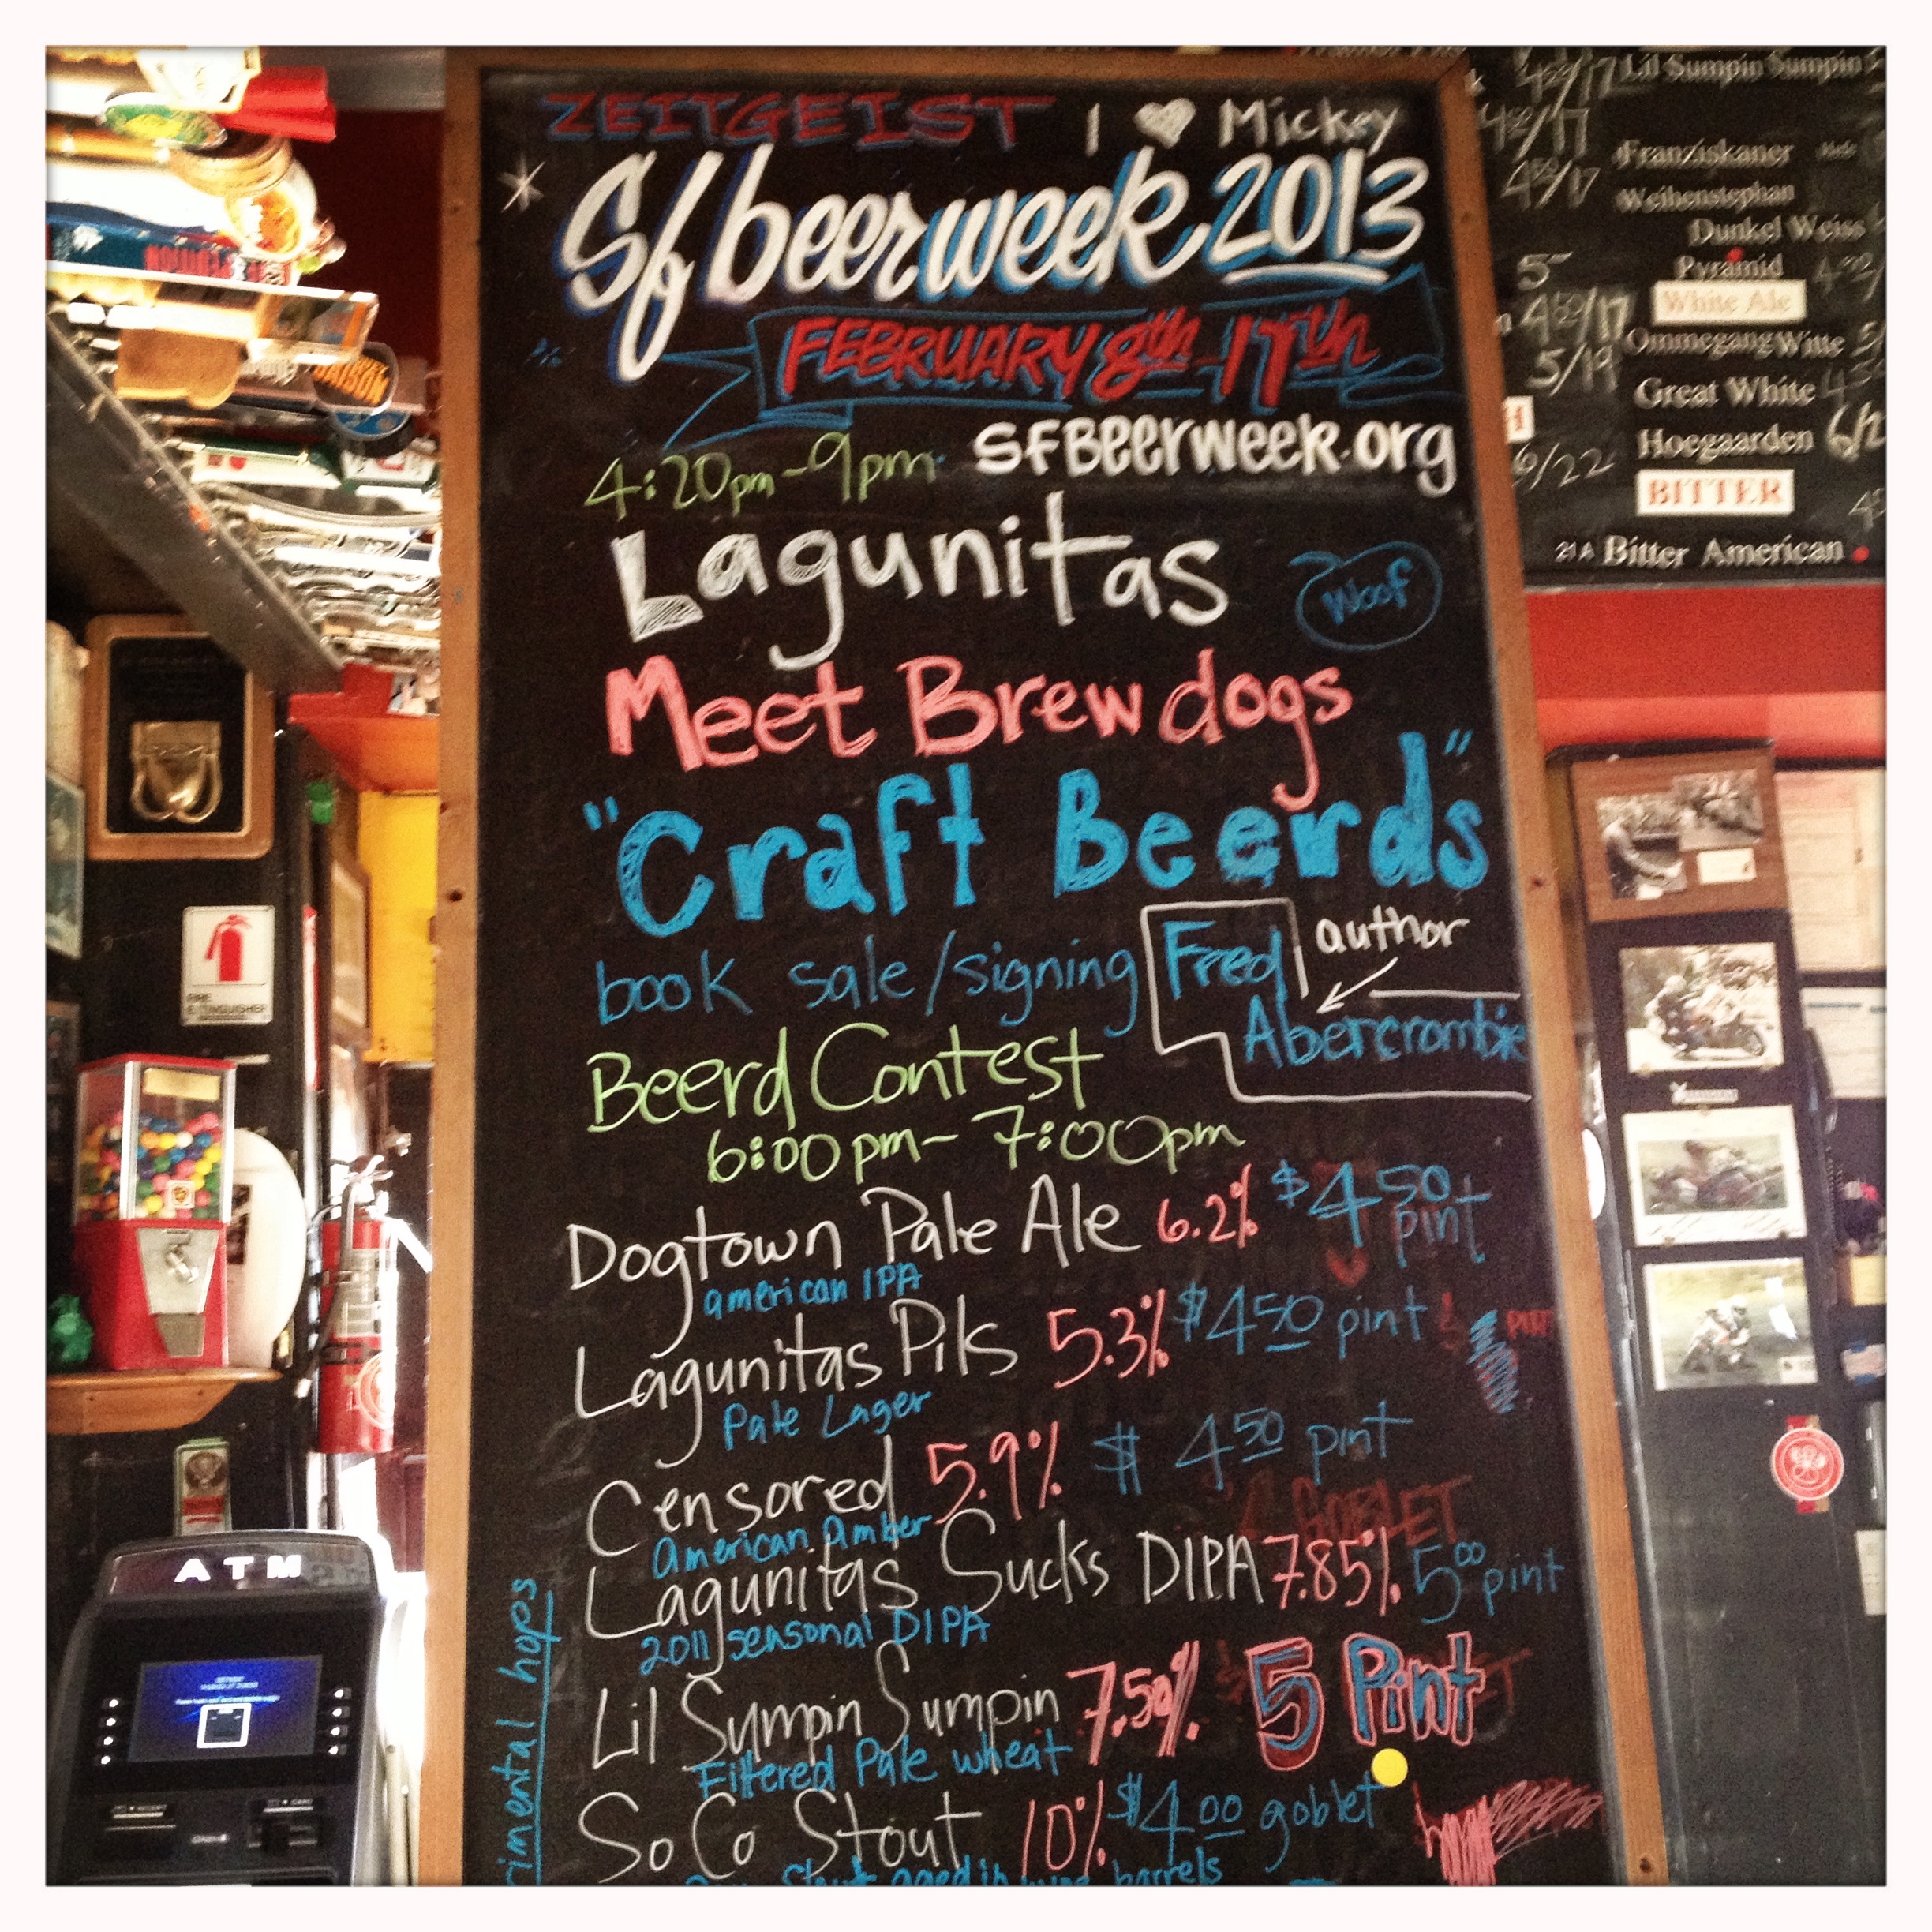 ZEITGEIST I ♥ Mickey
Sf beerweek 2013
FEBRUARY 8th - 17th
4:20pm - 9pm SFBeerweek.org
Lagunitas
Woof
Meet Brewdogs
"Craft Beerds"
book sale/signing Fred Abercrombie
author
Beerd Contest
6:00pm - 7:00pm
Dogtown Pale Ale 6.2% $4 50 pint
american IPA
Lagunitas Pils 5.3% $4 50 pint
Pale Lager
Censored 5.9% $ 4 50 pint
American Amber
GOBLET
Lagunitas Sucks DIPA 7.85% 5 00 pint
2011 seasonal DIPA
Lil Sumpin Sumpin 7.50% 5 Pint
Filtered Pale wheat
So Co Stout 10% $4 00 goblet
Stout aged in wine barrels
hops
Lil Sumpin Sumpin
Franziskaner
Weihenstephan
Dunkel Weiss
Pyramid
White Ale
Ommegang Witte
5/19
Great White
Hoegaarden
BITTER
21A Bitter American
FIRE
EXTINGUISHER
ATM